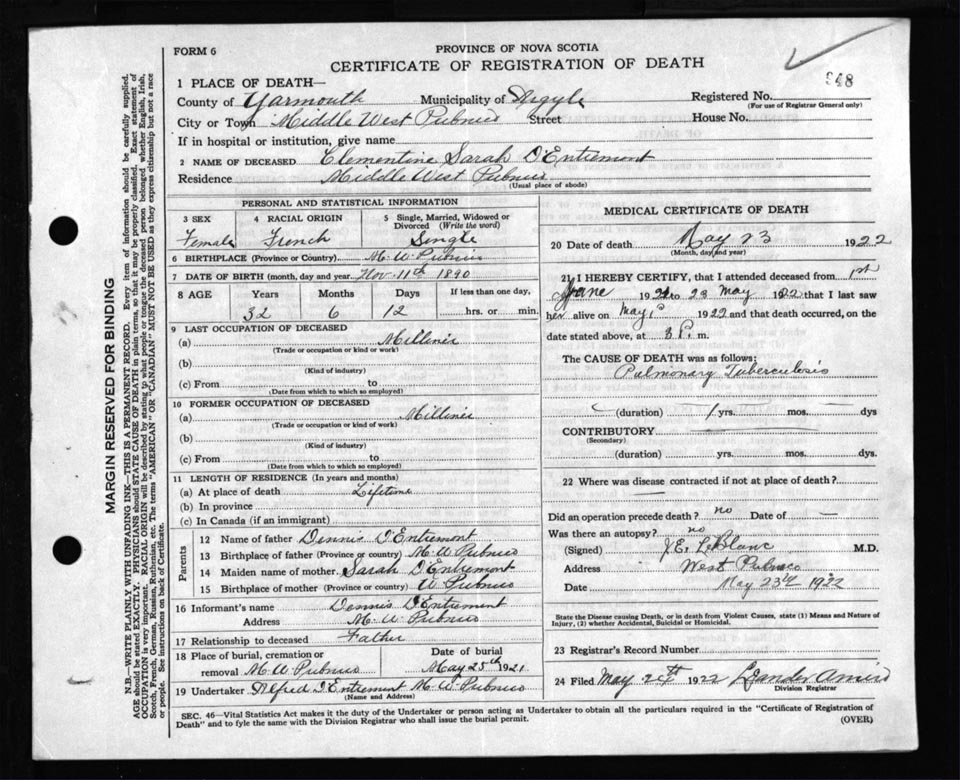 FORM 6
PROVINCE OF NOVA SCOTIA
CERTIFICATE OF REGISTRATION OF DEATH
MARGIN RESERVED FOR BINDING
N.B.—WRITE PLAINLY WITH UNFADING INK—THIS IS A PERMANENT RECORD. Every item of information should be carefully supplied.
AGE should be stated EXACTLY. PHYSICIANS should STATE CAUSE OF DEATH in plain terms, so that it may be properly classified. Exact statement of
OCCUPATION is very important. RACIAL ORIGIN will be described by stating to what people or tongue the deceased person belonged whether English, Irish,
Scotch, French, German, Russian, Ruthenian, etc. The terms "AMERICAN" OR "CANADIAN" MUST NOT BE USED as they express citizenship but not a race
or people. See instructions on back of Certificate.
1 PLACE OF DEATH—
848
County of Yarmouth Municipality of Argyle Registered No.
(For use of Registrar General only)
City or Town Middle West Pubnico Street House No.
If in hospital or institution, give name
2 NAME OF DECEASED Clementine Sarah D'Entremont
Residence Middle West Pubnico
(Usual place of abode)
PERSONAL AND STATISTICAL INFORMATION
3 SEX 4 RACIAL ORIGIN 5 Single, Married, Widowed or Divorced (Write the word)
Female French Single
6 BIRTHPLACE (Province or Country) M. W. Pubnico
7 DATE OF BIRTH (month, day and year) Nov-11th 1890
8 AGE Years Months Days If less than one day,
32 6 12 hrs. or min.
9 LAST OCCUPATION OF DECEASED
(a) Milliner
(Trade or occupation or kind or work)
(b)
(Kind of industry)
(c) From to
(Date from which to which so employed)
10 FORMER OCCUPATION OF DECEASED
(a) Milliner
(Trade or occupation or kind of work)
(b)
(Kind of industry)
(c) From to
(Date from which to which so employed)
11 LENGTH OF RESIDENCE (In years and months)
(a) At place of death Lifetime
(b) In province
(c) In Canada (if an immigrant)
Parents
12 Name of father Dennis D'Entremont
13 Birthplace of father (Province or country) M. W. Pubnico
14 Maiden name of mother Sarah D'Entremont
15 Birthplace of mother (Province or country) W Pubnico
16 Informant's name Dennis D'Entremont
Address M. W Pubnico
17 Relationship to deceased Father
18 Place of burial, cremation or Date of burial
removal M. W Pubnico May 25th 1921
19 Undertaker Alfred D'Entremont M. W Pubnico
(Name and Address)
MEDICAL CERTIFICATE OF DEATH
20 Date of death May 23 1922
(Month, day and year)
21 I HEREBY CERTIFY, that I attended deceased from 1st
June 1921 to 23 May 1922 that I last saw
her alive on May 1922 and that death occurred, on the
date stated above, at 3 P. m.
The CAUSE OF DEATH was as follows:
Pulmonary Tuberculosis
(duration) 1 yrs. mos. dys
CONTRIBUTORY
(Secondary)
(duration) yrs. mos. dys.
22 Where was disease contracted if not at place of death?
Did an operation precede death? no Date of —
Was there an autopsy? no
(Signed) J. E. LeBlanc M.D.
Address West Pubnico
Date May 23rd 1922
State the Disease causing Death, or in death from Violent Causes, state (1) Means and Nature of
Injury, (2) whether Accidental, Suicidal or Homicidal.
23 Registrar's Record Number
24 Filed May 24th 1922 Leander Amiro
Division Registrar
SEC. 46—Vital Statistics Act makes it the duty of the Undertaker or person acting as Undertaker to obtain all the particulars required in the "Certificate of Registration of
Death" and to fyle the same with the Division Registrar who shall issue the burial permit.
(OVER)